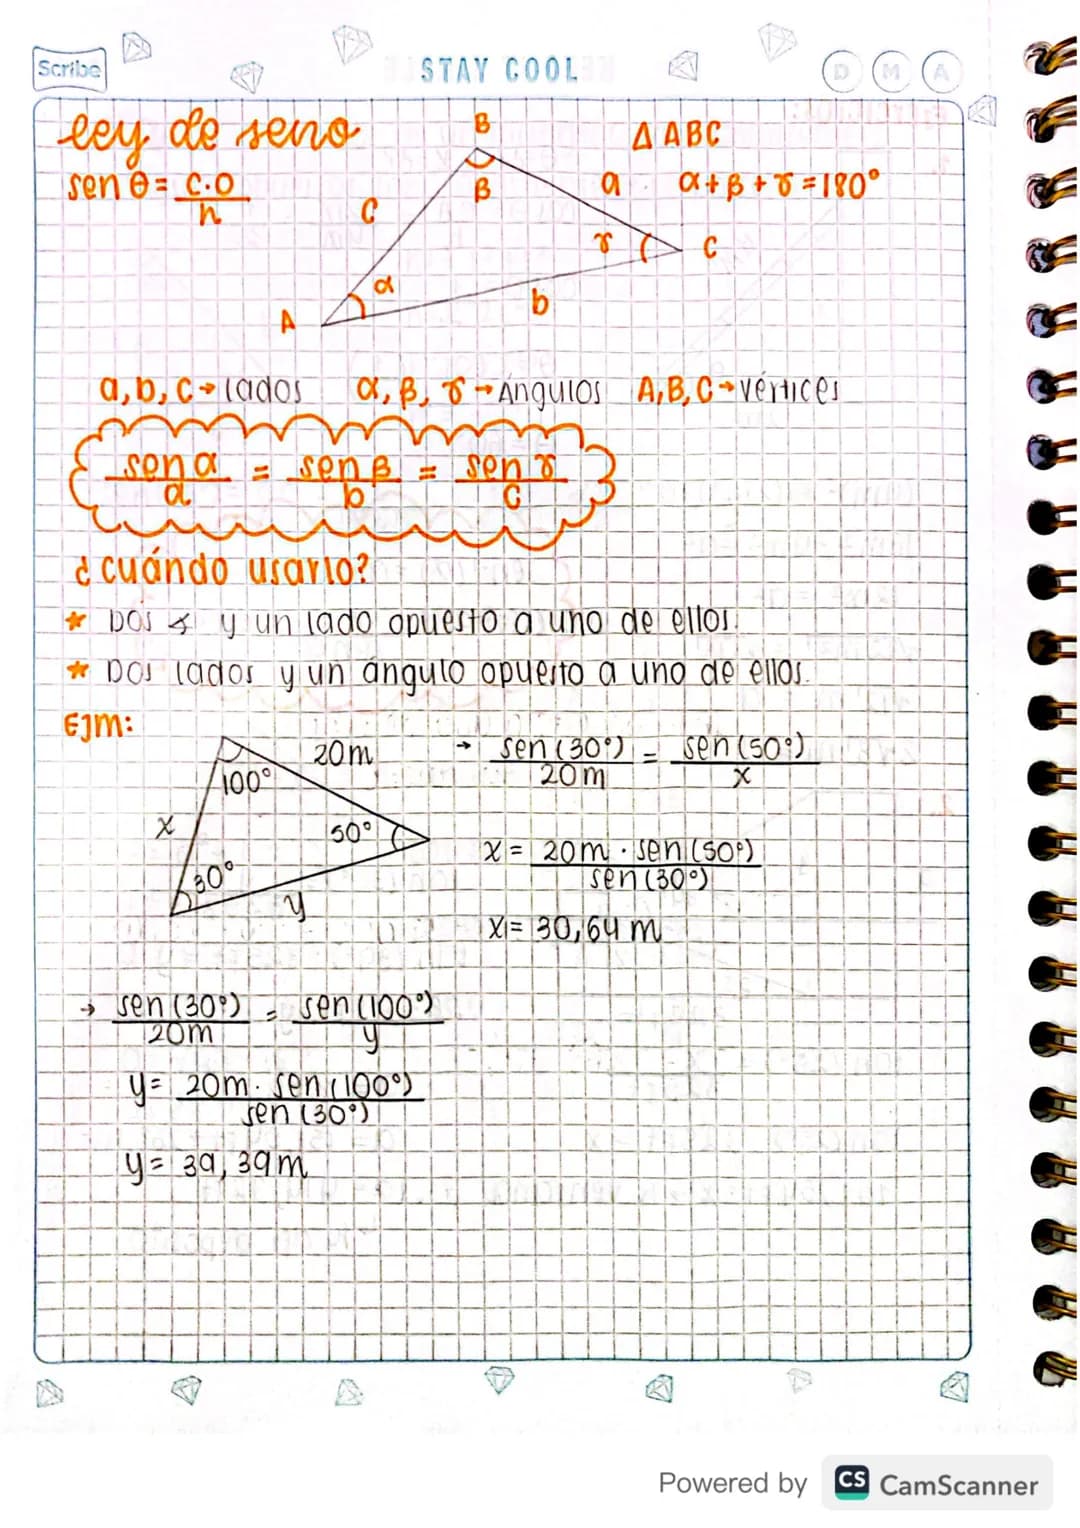 Scribe
STAY COOL
D M A
ley de seno
sen θ = c.o / h
B
β
c
a
α
γ
C
A
b
Δ ABC
α + β + γ = 180°
a, b, c → lados α, β, γ → Ángulos A, B, C → vértices
sen α / a = sen β / b = sen γ / c
¿cuándo usarlo?
★ Dos ∡ y un lado opuesto a uno de ellos.
★ Dos lados y un ángulo opuesto a uno de ellos.
Ejm:
20m
100°
x
50°
30°
y
→ sen (30°) / 20m = sen (50°) / x
x = 20m · sen (50°) / sen (30°)
x = 30,64 m
→ sen (30°) / 20m = sen (100°) / y
y = 20m · sen (100°) / sen (30°)
y = 39,39m
Powered by CS CamScanner